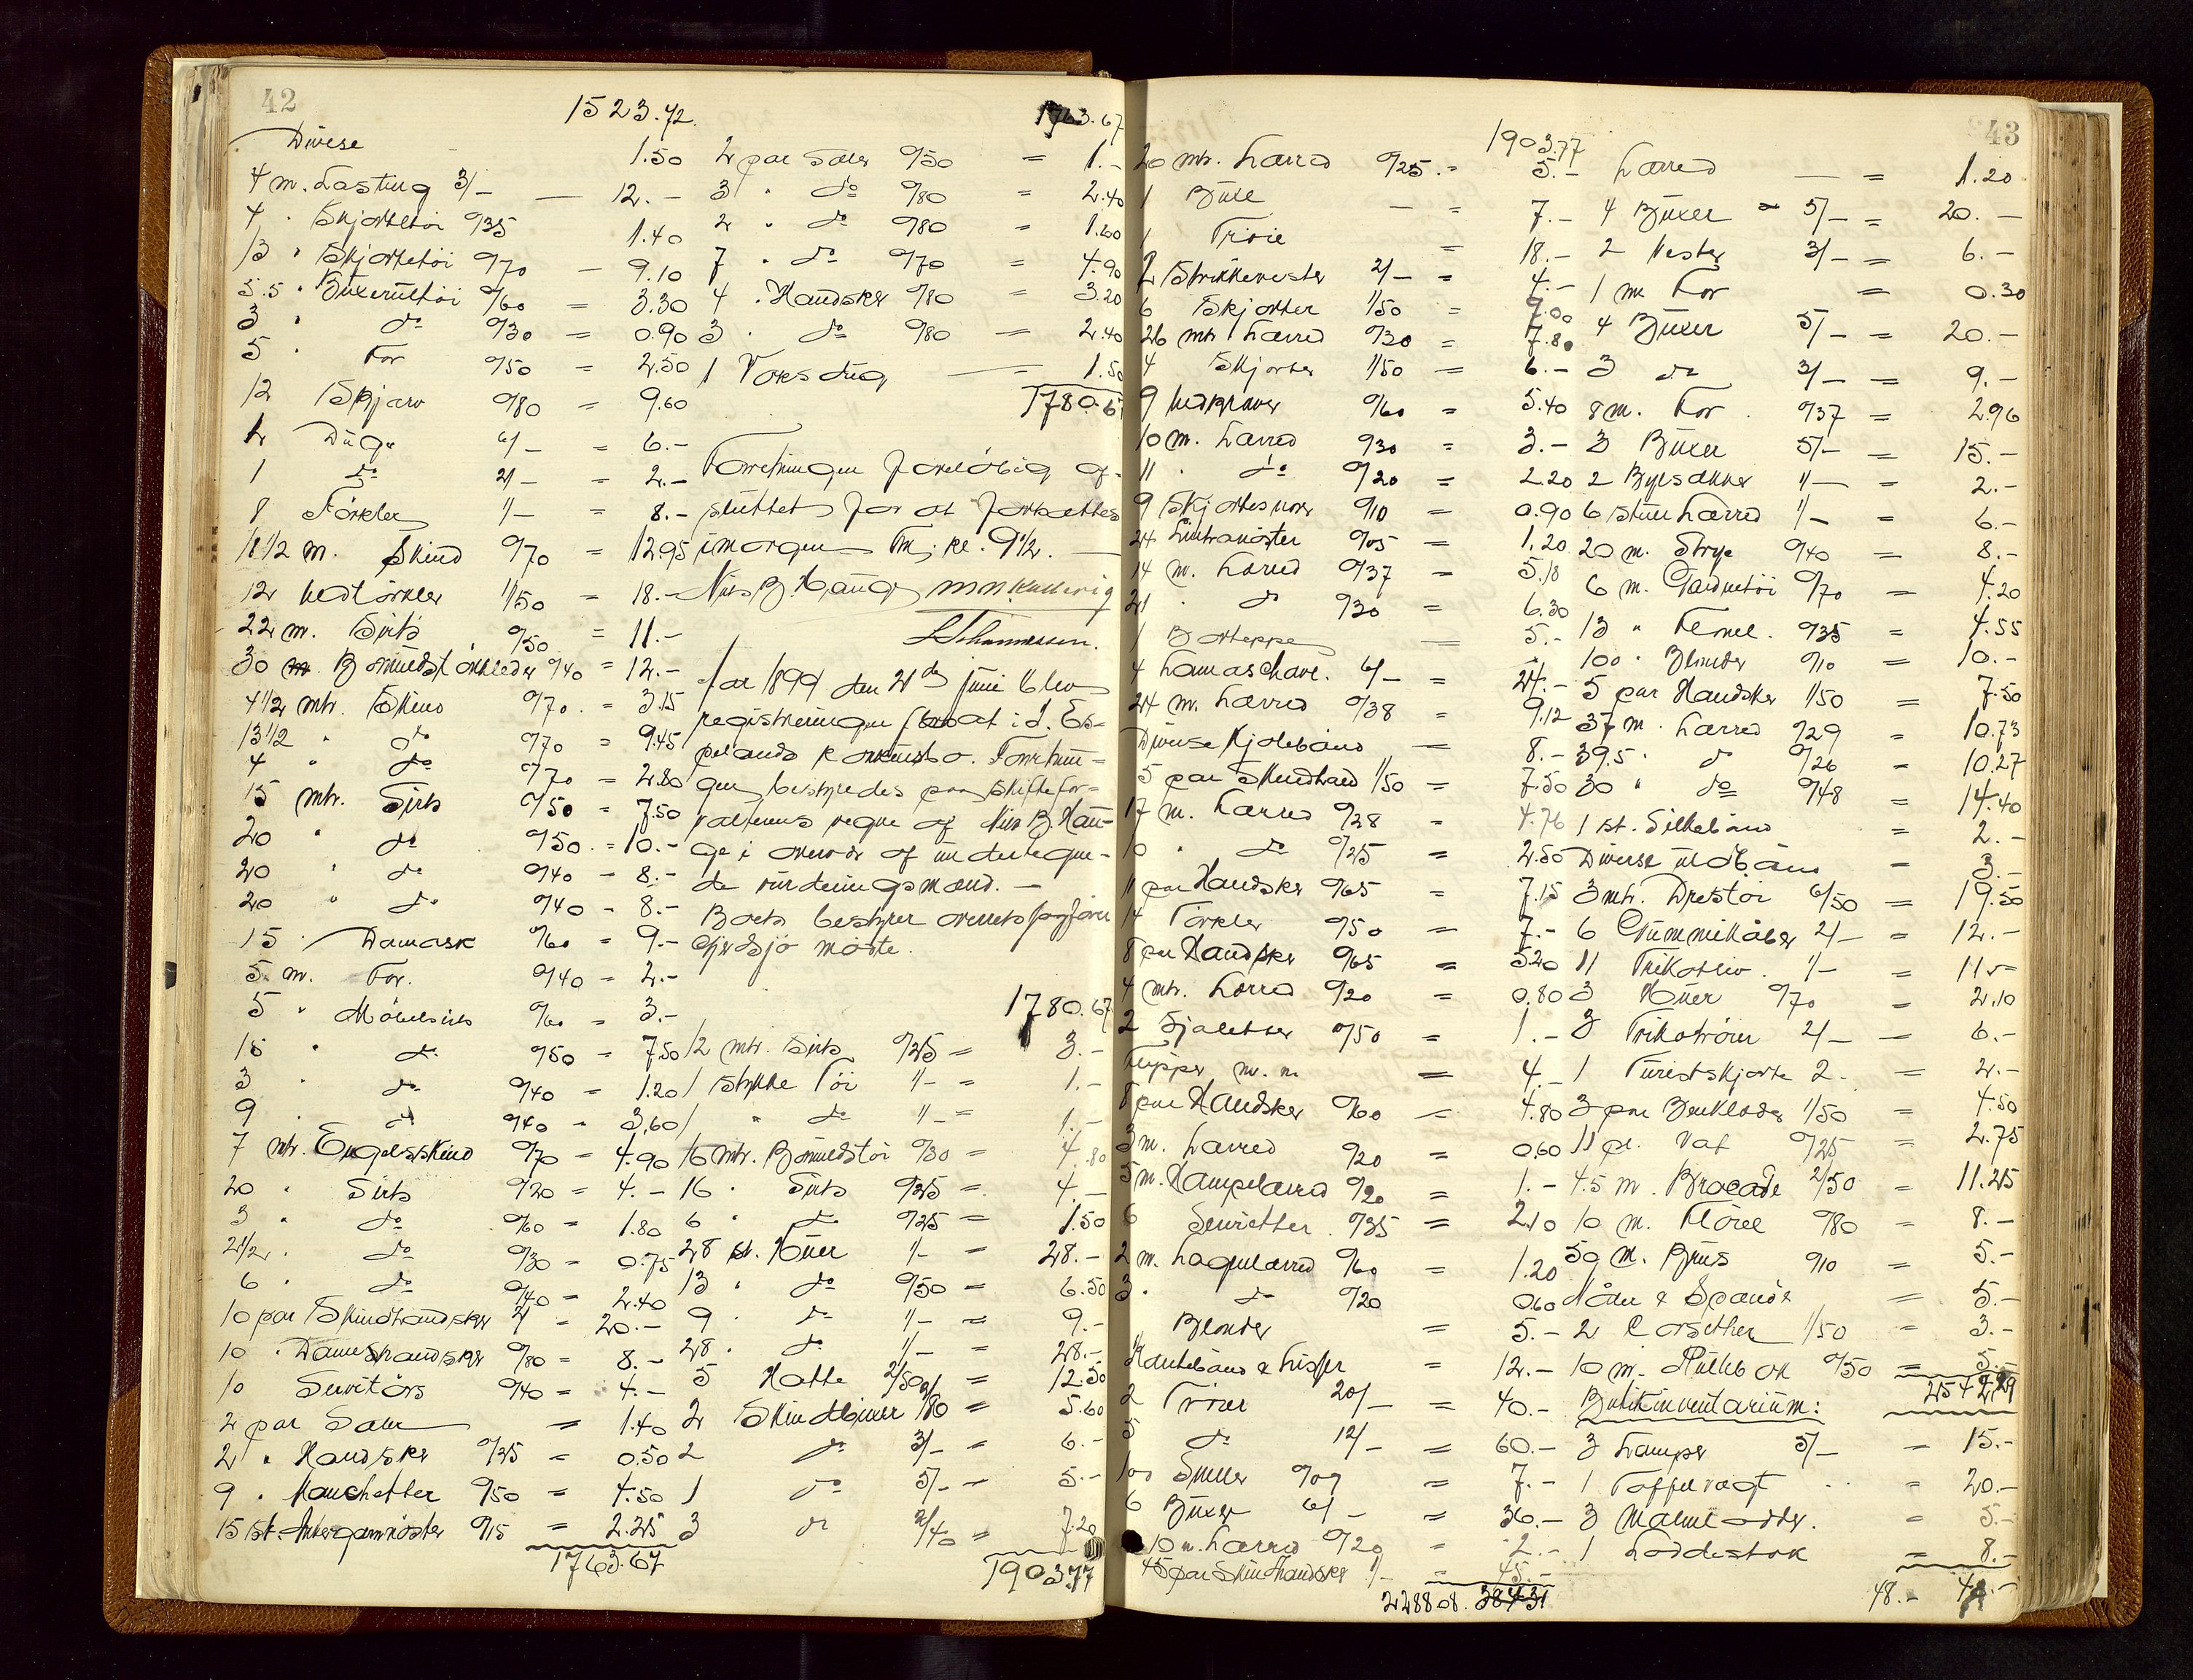 42
1523.72
Diverse 1.50
4 m. Lasting 3/- 12.-
4 " Skjortetöi 0/35 1.40
13 " Skjortetöi 0/70 - 9.10
5.5 " Buxerultöi 0/60 = 3.30
3 " do 0/30 = 0.90
5 " For 0/50 = 2.50
12 Skjærv 0/80 = 9.60
1 Duge 6/- = 6.-
1 do 2/- = 2.-
8 Förkler 1/- = 8.-
18 1/2 m. Skind 0/70 = 12.95
12 Uldtörkler 1/50 = 18.-
22 m. Sirts 0/50 = 11.-
30 Bomuldstörklæder 0/40 = 12.-
4 1/2 mtr. Skind 0/70 = 3.15
13 1/2 " do 0/70 = 9.45
4 " do 0/70 = 2.80
15 mtr. Sirts 0/50 = 7.50
20 " do 0/50 = 10.-
20 " do 0/40 - 8.-
20 " do 0/40 - 8.-
15 " Damask 0/60 = 9.-
5 m. For. 0/40 = 2.-
5 " Möbelsirts 0/60 = 3.-
15 " do 0/50 = 7.50
3 " do 0/40 = 1.20
9 " do 0/40 = 3.60
7 mtr. Engelskskind 0/70 = 4.90
20 " Sirts 0/20 = 4.-
3 " do 0/60 = 1.80
2 1/2 " do 0/30 = 0.75
6 " do 0/40 = 2.40
10 par Skindhandsker 2/ = 20.-
10 " Dameshandsker 0/80 = 8.-
10 Servitörs 0/40 = 4.-
2 par Saler = 1.40
2 " Handsker 0/25 = 0.50
9 " Manchetter 0/50 = 4.50
15 st. Ankergarnnöster 0/15 = 2.25
1763.67
1763.67
2 par Saler 0/50 = 1.-
3 " do 0/80 = 2.40
2 " do 0/80 = 1.60
7 " do 0/70 = 4.90
4 " Handsker 0/80 = 3.20
3 " do 0/80 = 2.40
1 Voksdug = 1.50
1780.67
Forretningen foreløbig af-
sluttet for at fortsættes
imorgen Fm. kl. 9 1/2.
Nils B. Hauge M.N. Kallevig
L Johannessen.
Aar 1899 den 21de juni blev
registreringen fortsat i J. Es-
pelands konkursbo. Forretnin-
gen bestyredes paa Skiftefor-
valterens vegne af Nils B. Hau-
ge i overvær af undertegne-
de vurderingsmænd. -
Boets bestyrer overretssagfører
Gjedsjö mödte.
1780.67
12 mtr. Sirts 0/25 = 3.-
1 stykke Töi 1/- = 1.-
1 " do 1/- = 1.-
16 mtr. Bomuldstöi 0/30 = 4.80
16 " Sirts 0/25 = 4.-
6 " do 0/25 = 1.50
28 st. Huer 1/- = 28.-
13 " do 0/50 = 6.50
9 " do 1/- = 9.-
28 " do 1/- = 28.-
5 Hatte 2/50 = 12.50
2 Skindhuer 2/80 = 5.60
2 do 3/- = 6.-
1 do 5/- = 5.-
3 do 2/40 = 7.20
1903.77
43
1903.77
20 mtr. Lærred 0/25 = 5.-
1 Buxe - = 7.-
1 Tröie = 18.-
2 Strikkevester 2/- = 4.-
6 Skjorter 1/50 = 9.00
26 mtr. Lærred 0/30 = 7.80
4 Skjorter 1/50 = 6.-
9 Uldkraver 0/60 = 5.40
10 m. Lærred 0/30 = 3.-
11 " do 0/20 = 2.20
9 Skjortesnorer 0/10 = 0.90
24 Lintraanöster 0/05 = 1.20
14 m. Lærred 0/37 = 5.18
21 " do 0/30 = 6.30
1 Bordteppe = 5.-
4 Lamaschave. 6/- = 24.-
24 m. Lærred 0/38 = 9.12
Diverse Kjolebaand = 8.-
5 par Skindhand 1/50 = 7.50
17 m. Lærred 0/28 = 4.76
10 " do 0/25 = 2.50
11 par Handsker 0/65 = 7.15
14 Törkler 0/50 = 7.-
8 par Handsker 0/65 = 5.20
4 mtr. Lærred 0/20 = 0.80
2 Sjaletter 0/50 = 1.-
m. m. = 4.-
8 par Handsker 0/60 = 4.80
3 m. Lærred 0/20 = 0.60
5 m. Hampelærred 0/20 = 1.-
6 Servietter 0/35 = 2.10
2 m. Lagenlærred 0/60 = 1.20
3 " do 0/20 0.60
Blonder = 5.-
Kantebaand & Lidser = 12.-
2 Tröier 20/- = 40.-
5 do 12/- = 60.-
100 Sneller 0/07 = 7.-
6 Buxer 6/- = 36.-
10 m. Lærred 0/20 = 2.-
45 par Skindhandsker 1/- = 45.-
2288.08. 384.31
Lærred = 1.20
4 Buxer 5/- = 20.-
2 Vester 3/- = 6.-
1 m For = 0.30
4 Buxer 5/- = 20.-
3 do 3/- = 9.-
8 m. For 0/37 = 2.96
3 Buxer 5/- = 15.-
2 Byssekker 1/- = 2.-
6 stuer Lærred 1/- = 6.-
20 m. Strye 0/40 = 8.-
6 m. Gardintöi 0/70 = 4.20
13 " Flonel. 0/35 = 4.55
100 " Blonder 0/10 = 10.-
5 par Handsker 1/50 = 7.50
37 m. Lærred 0/29 = 10.73
39.5 " do 0/26 = 10.27
30 " do 0/48 = 14.40
1 st. Silkebaand = 2.-
Diverse uldbaand = 3.-
3 mtr. Drestöi 6/50 = 19.50
6 Gummikåber 2/- = 12.-
11 Trikotliv. 1/- = 11.-
3 Huer 0/70 = 2.10
3 Trikotröier 2/- = 6.-
1 Turistskjorte 2.- = 2.-
3 par Benklæder 1/50 = 4.50
11 pk. Vat 0/25 = 2.75
4.5 m. Brocade 2/50 = 11.25
10 m. Flöiel 0/80 = 8.-
50 m. Pjus 0/10 = 5.-
Naaler & Spænde = 5.-
2 Corsetter 1/50 = 3.-
10 m. 0/50 = 5.-
2542.29
Butikinventarium:
3 Lamper 5/- = 15.-
1 Taffelvægt = 20.-
3 Malmlodder. = 5.-
1 Loddestok = 8.-
48.- 48.-